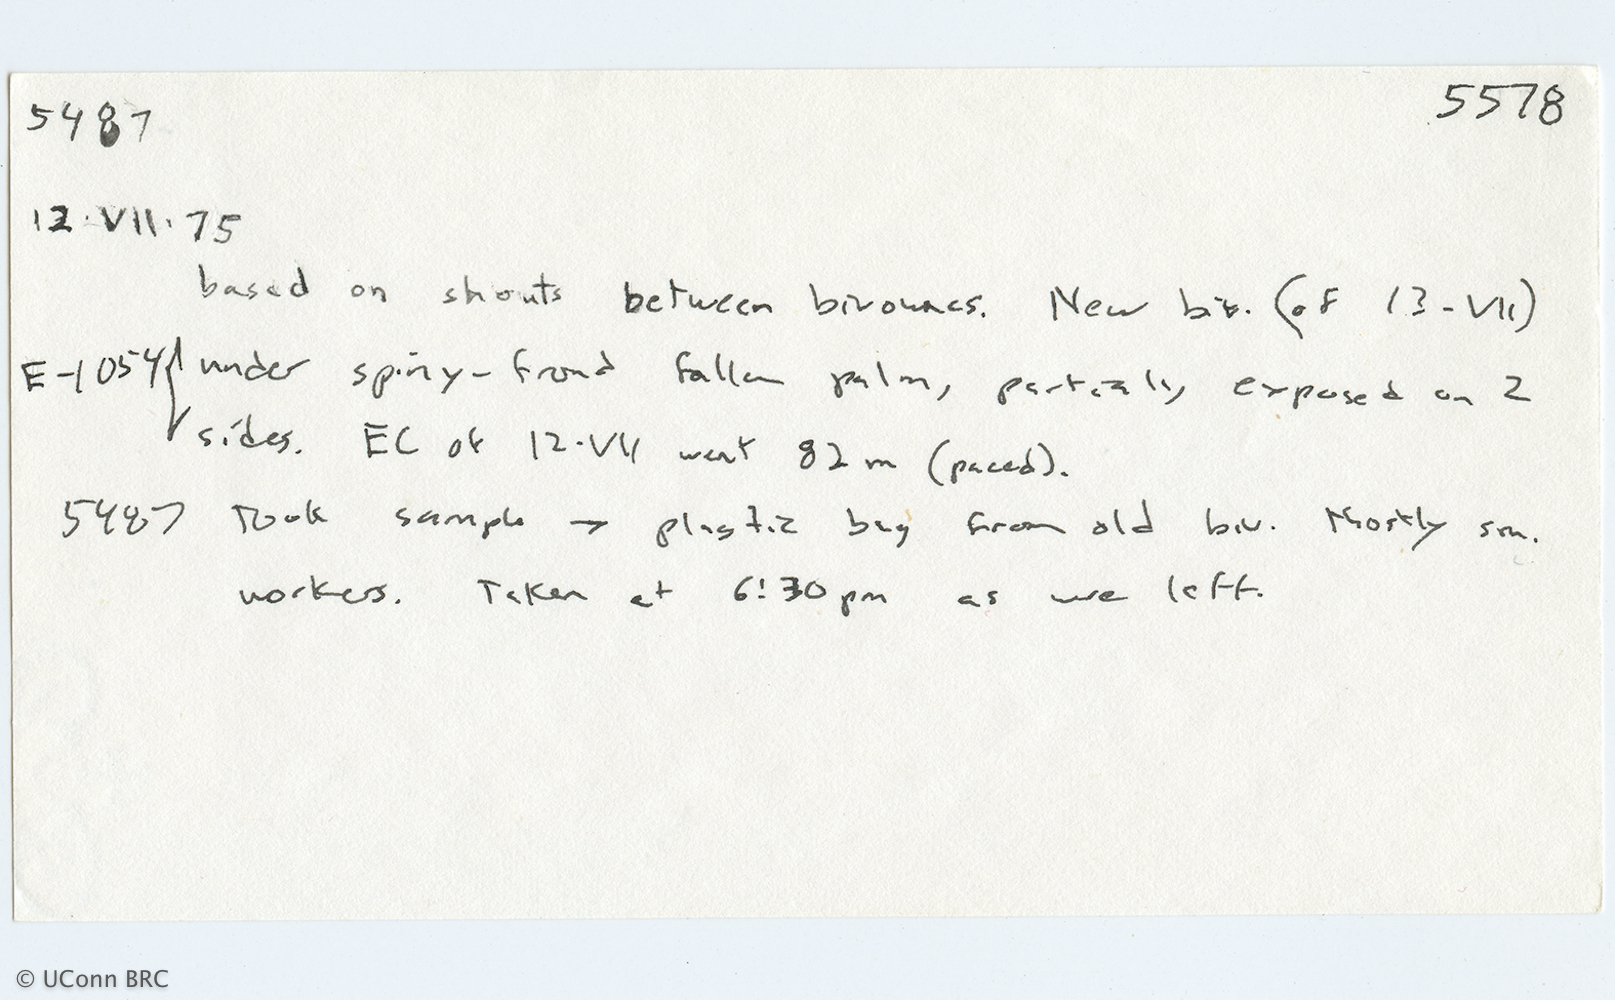 5487 5578
12·VII·75
based on shouts between bivouacs. New biv. (of 13-VII)
E-1054 { under spiny-frond fallen palm, partially exposed on 2
sides. EC of 12·VII went 82 m (paced).
5487 Took sample → plastic bag from old biv. Mostly sm.
workers. Taken at 6:30 pm as we left.
© UConn BRC